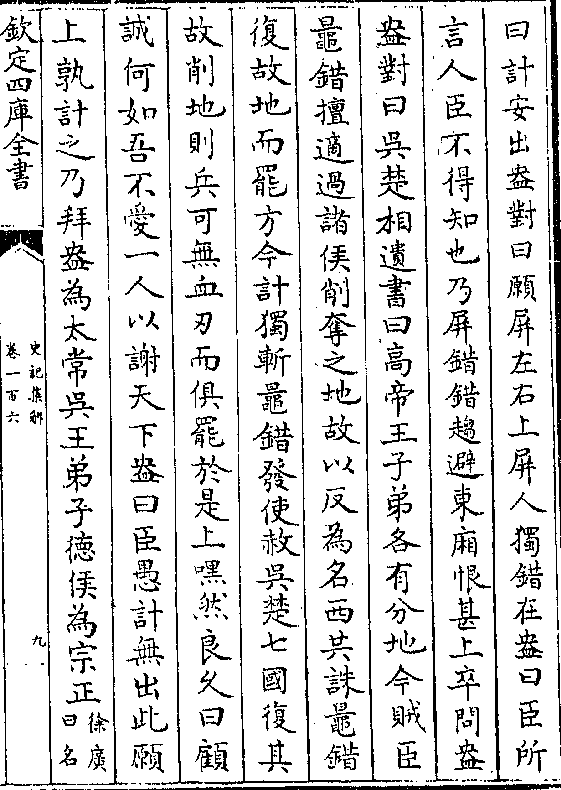 曰計安出盎對曰願屏左右上屏人獨錯在盎曰臣所
言人臣不得知也乃屏錯錯趨避東廂恨甚上卒問盎
盎對曰吳楚相遺書曰高帝王子弟各有分地今賊臣
鼂錯擅適過諸侯削奪之地故以反為名西共誅鼂錯
復故地而罷方今計獨斬鼂錯發使赦吳楚七國復其
故削地則兵可無血刃而俱罷於是上嘿然良久曰顧
誠何如吾不愛一人以謝天下盎曰臣愚計無出此願
上孰計之乃拜盎為太常吳王弟子德侯為宗正徐廣
曰名
欽定四庫全書
史記集解
卷一百六
九